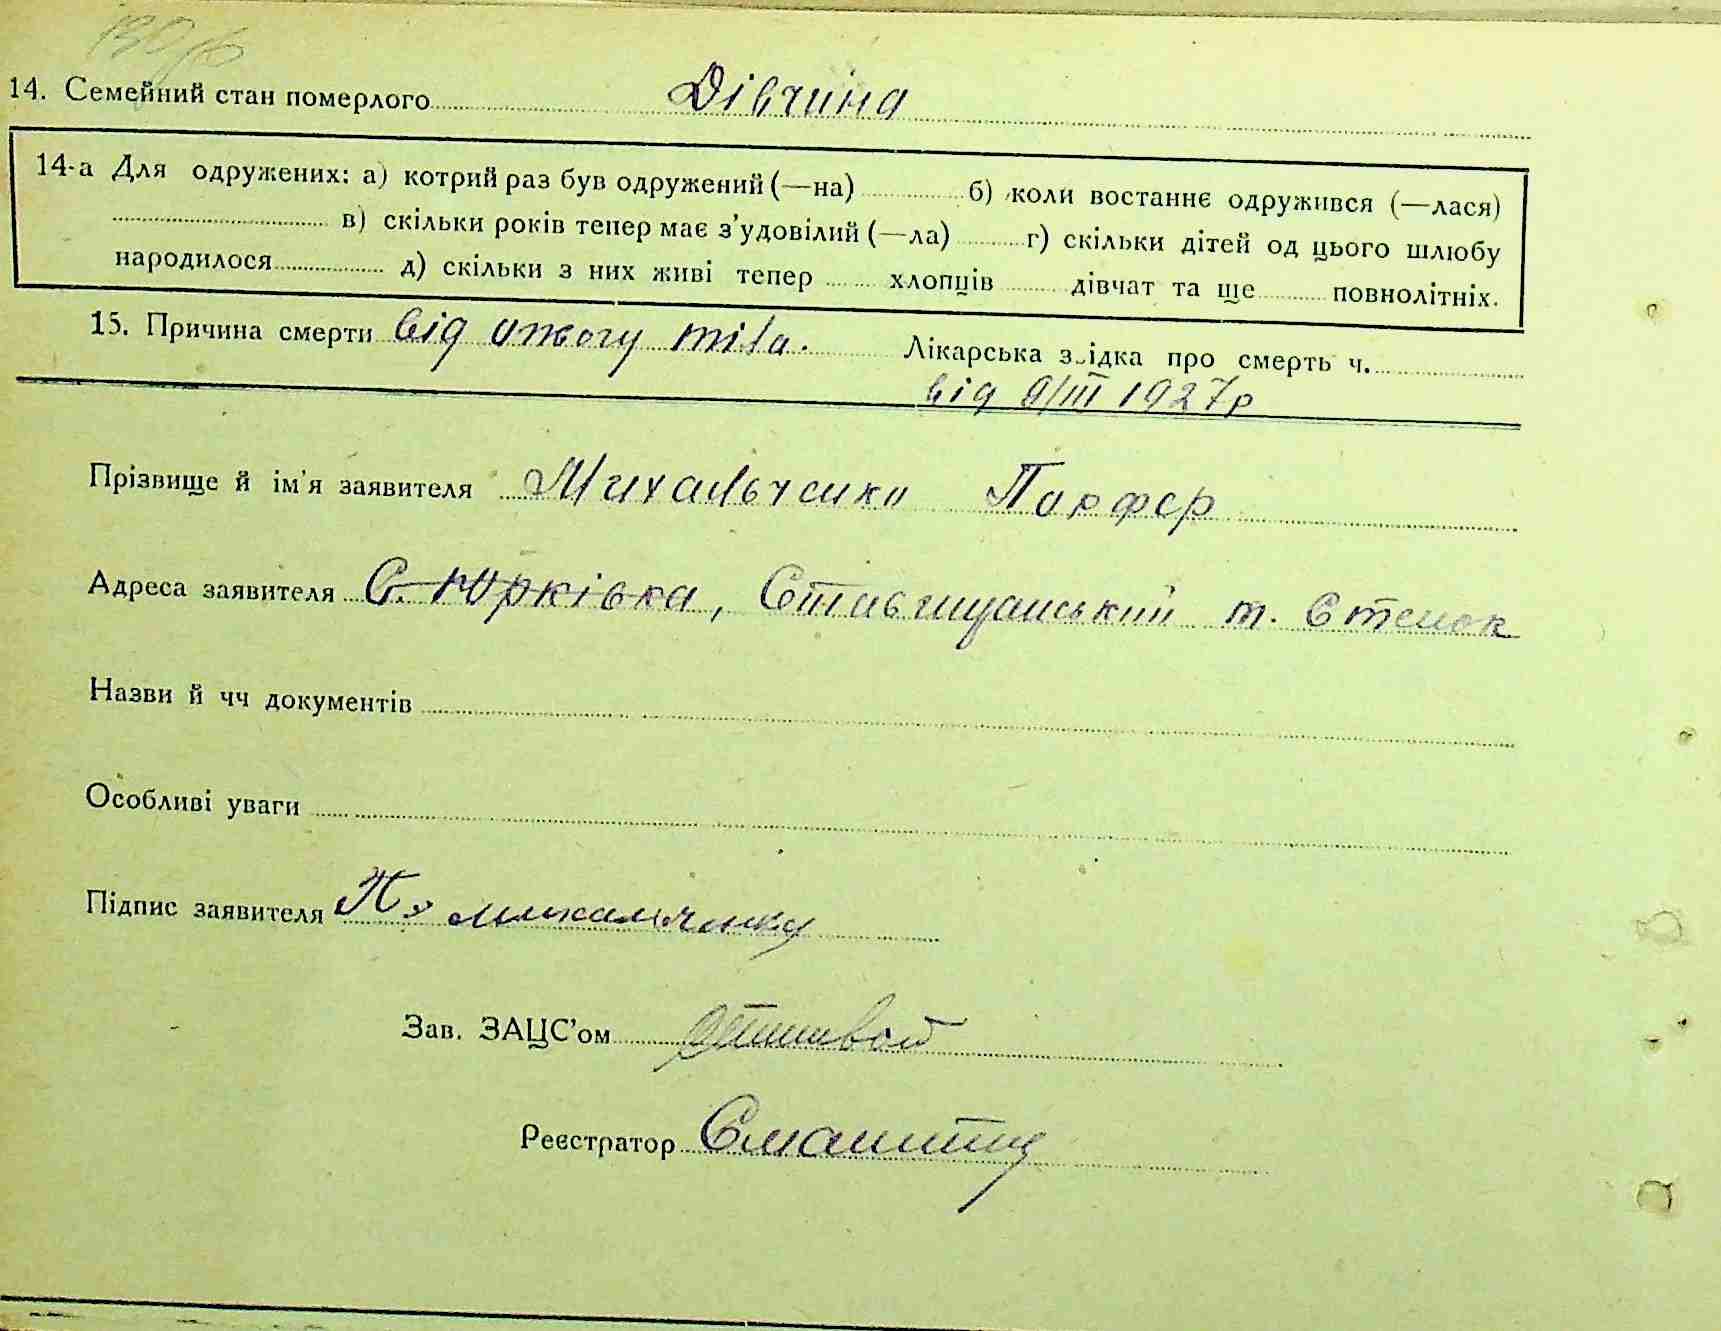 14. Семейний стан померлого Дівчина
14-а Для одружених: а) котрий раз був одружений (—на) б) коли востаннє одружився (—лася)
в) скільки років тепер має з’удовілий (—ла) г) скільки дітей од цього шлюбу
народилося д) скільки з них живі тепер хлопців дівчат та ще повнолітніх.
15. Причина смерти від ожогу тіла. Лікарська з ідка про смерть ч.
від 9/III 1927р
Прізвище й ім’я заявителя Михальченко Порфер
Адреса заявителя С. Юрківка, Ставищанський т.
Назви й чч документів
Особливі уваги
Підпис заявителя П. Михальченко
Зав. ЗАЦС’ом
Реєстратор